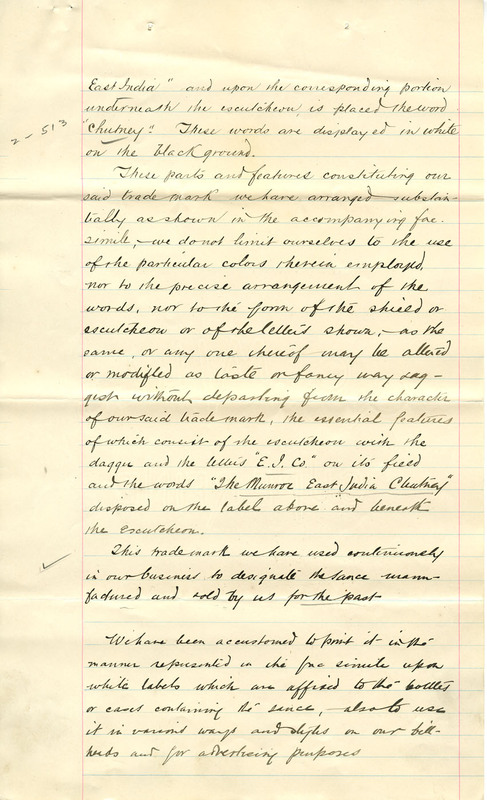 East India" and upon the corresponding portion
underneath the escutcheon, is placed the word
"Chutney". These words are displayed in white
on the black ground.
2-513
These parts and features constituting our
said trade mark we have arranged substan-
tially as shown in the accompanying fac.
simile,- we do not limit ourselves to the use
of the particular colors therein employed,
nor to the precise arrangement of the
words, nor to the form of the shield or
escutcheon or of the letters shown,- as the
same, or any one thereof may be altered
or modified as taste or fancy may sug-
gest without departing from the character
of our said trade mark, the essential features
of which consist of the escutcheon with the
dagger and the letters "E. I. Co." on its field
and the words "The Munroe East India Chutney"
disposed on the label above and beneath
the escutcheon.
This trade mark we have used continuously
in our business to designate the sauce manu-
factured and sold by us for the past
We have been accustomed to print it in the
manner represented in the fac simile upon
white labels which are affixed to the bottles
or cases containing the sauce,- also to use
it in various ways and styles on our bill-
heads and for advertising purposes